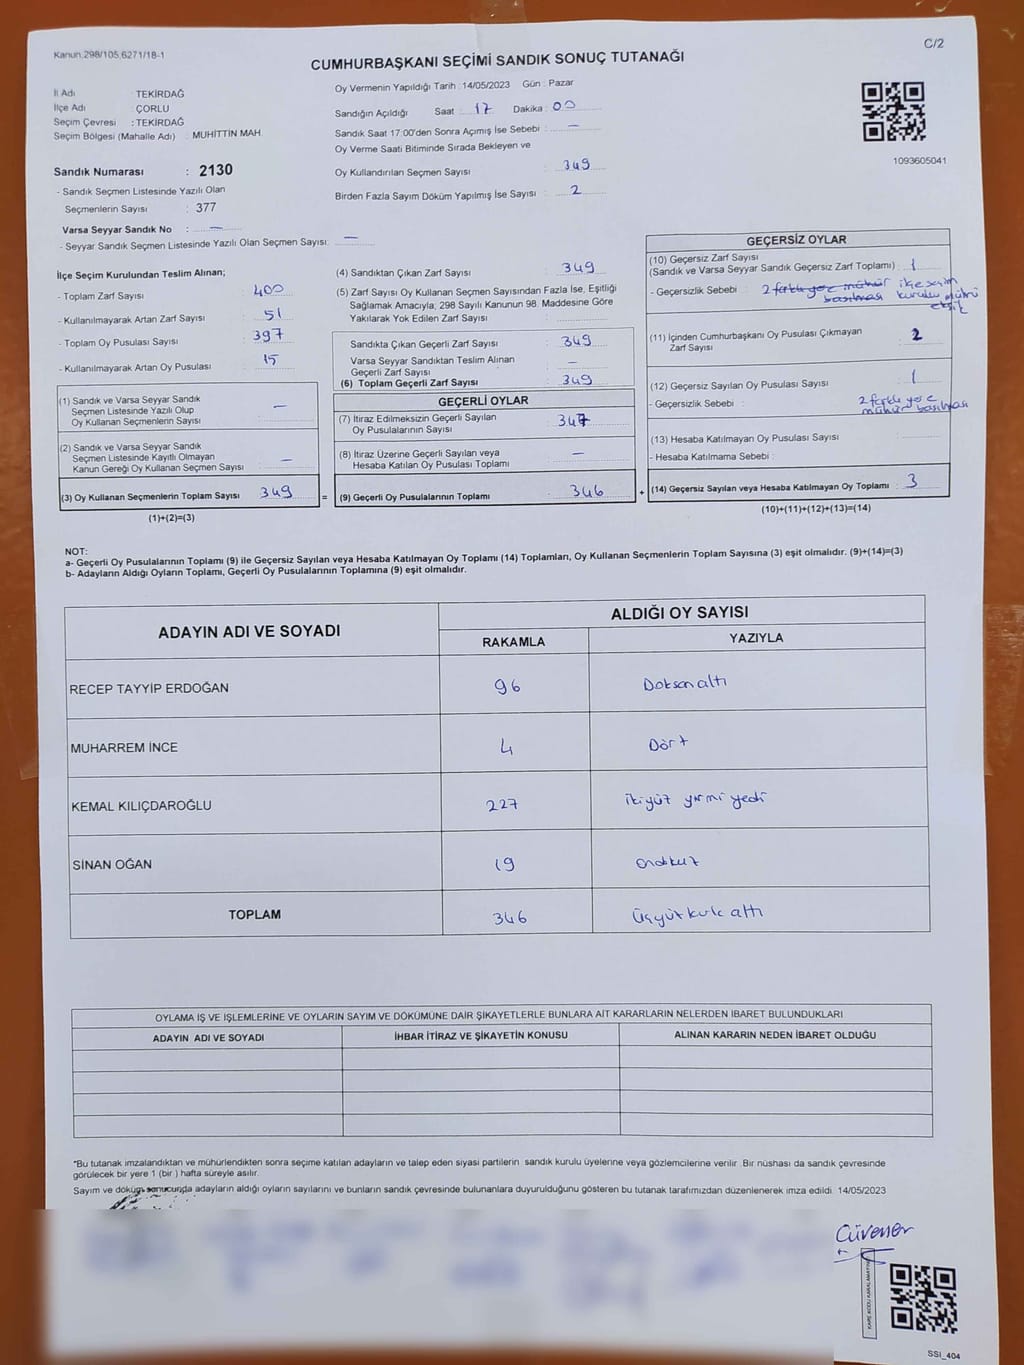 Kanun.298/105,6271/18-1
C/2
CUMHURBAŞKANI SEÇİMİ SANDIK SONUÇ TUTANAĞI
İl Adı : TEKİRDAĞ
İlçe Adı : ÇORLU
Seçim Çevresi : TEKİRDAĞ
Seçim Bölgesi (Mahalle Adı) : MUHİTTİN MAH.
Oy Vermenin Yapıldığı Tarih : 14/05/2023 Gün : Pazar
Sandığın Açıldığı Saat : 17 Dakika : 00
Sandık Saat 17:00'den Sonra Açımış İse Sebebi : —
Oy Verme Saati Bitiminde Sırada Bekleyen ve
Oy Kullandırılan Seçmen Sayısı : 349
Birden Fazla Sayım Döküm Yapılmış İse Sayısı : 2
1093605041
Sandık Numarası : 2130
- Sandık Seçmen Listesinde Yazılı Olan
Seçmenlerin Sayısı : 377
Varsa Seyyar Sandık No : —
- Seyyar Sandık Seçmen Listesinde Yazılı Olan Seçmen Sayısı: —
İlçe Seçim Kurulundan Teslim Alınan;
- Toplam Zarf Sayısı : 400
- Kullanılmayarak Artan Zarf Sayısı : 51
- Toplam Oy Pusulası Sayısı : 397
- Kullanılmayarak Artan Oy Pusulası : 15
(1) Sandık ve Varsa Seyyar Sandık
Seçmen Listesinde Yazılı Olup
Oy Kullanan Seçmenlerin Sayısı : —
(2) Sandık ve Varsa Seyyar Sandık
Seçmen Listesinde Kayıtlı Olmayan
Kanun Gereği Oy Kullanan Seçmen Sayısı : —
(3) Oy Kullanan Seçmenlerin Toplam Sayısı : 349 =
(1)+(2)=(3)
(4) Sandıktan Çıkan Zarf Sayısı : 349
(5) Zarf Sayısı Oy Kullanan Seçmen Sayısından Fazla İse, Eşitliği
Sağlamak Amacıyla, 298 Sayılı Kanunun 98. Maddesine Göre
Yakılarak Yok Edilen Zarf Sayısı :
Sandıkta Çıkan Geçerli Zarf Sayısı : 349
Varsa Seyyar Sandıktan Teslim Alınan
Geçerli Zarf Sayısı : —
(6) Toplam Geçerli Zarf Sayısı : 349
GEÇERLİ OYLAR
(7) İtiraz Edilmeksizin Geçerli Sayılan
Oy Pusulalarının Sayısı : 347
(8) İtiraz Üzerine Geçerli Sayılan veya
Hesaba Katılan Oy Pusulası Toplamı : —
(9) Geçerli Oy Pusulalarının Toplamı : 346 +
GEÇERSİZ OYLAR
(10) Geçersiz Zarf Sayısı
(Sandık ve Varsa Seyyar Sandık Geçersiz Zarf Toplamı) : 1
- Geçersizlik Sebebi : 2 farklı yere mühür ilçe seçim
basılması kurulu mührü
eksik
(11) İçinden Cumhurbaşkanı Oy Pusulası Çıkmayan
Zarf Sayısı : 2
(12) Geçersiz Sayılan Oy Pusulası Sayısı : 1
- Geçersizlik Sebebi : 2 farklı yere
mühür basılması
(13) Hesaba Katılmayan Oy Pusulası Sayısı :
- Hesaba Katılmama Sebebi :
(14) Geçersiz Sayılan veya Hesaba Katılmayan Oy Toplamı : 3
(10)+(11)+(12)+(13)=(14)
NOT:
a- Geçerli Oy Pusulalarının Toplamı (9) ile Geçersiz Sayılan veya Hesaba Katılmayan Oy Toplamı (14) Toplamları, Oy Kullanan Seçmenlerin Toplam Sayısına (3) eşit olmalıdır. (9)+(14)=(3)
b- Adayların Aldığı Oyların Toplamı, Geçerli Oy Pusulalarının Toplamına (9) eşit olmalıdır.
ADAYIN ADI VE SOYADI
ALDIĞI OY SAYISI
RAKAMLA YAZIYLA
RECEP TAYYİP ERDOĞAN 96 Doksan altı
MUHARREM İNCE 4 Dört
KEMAL KILIÇDAROĞLU 227 ikiyüz yirmi yedi
SİNAN OĞAN 19 ondokuz
TOPLAM 346 Üçyüz kırk altı
OYLAMA İŞ VE İŞLEMLERİNE VE OYLARIN SAYIM VE DÖKÜMÜNE DAİR ŞİKAYETLERLE BUNLARA AİT KARARLARIN NELERDEN İBARET BULUNDUKLARI
ADAYIN ADI VE SOYADI İHBAR İTİRAZ VE ŞİKAYETİN KONUSU ALINAN KARARIN NEDEN İBARET OLDUĞU
*Bu tutanak imzalandıktan ve mühürlendikten sonra seçime katılan adayların ve talep eden siyasi partilerin sandık kurulu üyelerine veya gözlemcilerine verilir. Bir nüshası da sandık çevresinde
görülecek bir yere 1 (bir ) hafta süreyle asılır.
Sayım ve döküm sonucunda adayların aldığı oyların sayılarını ve bunların sandık çevresinde bulunanlara duyurulduğunu gösteren bu tutanak tarafımızdan düzenlenerek imza edildi. 14/05/2023
Güvener
KARE KODU KARALAMAYIN
SSI_404